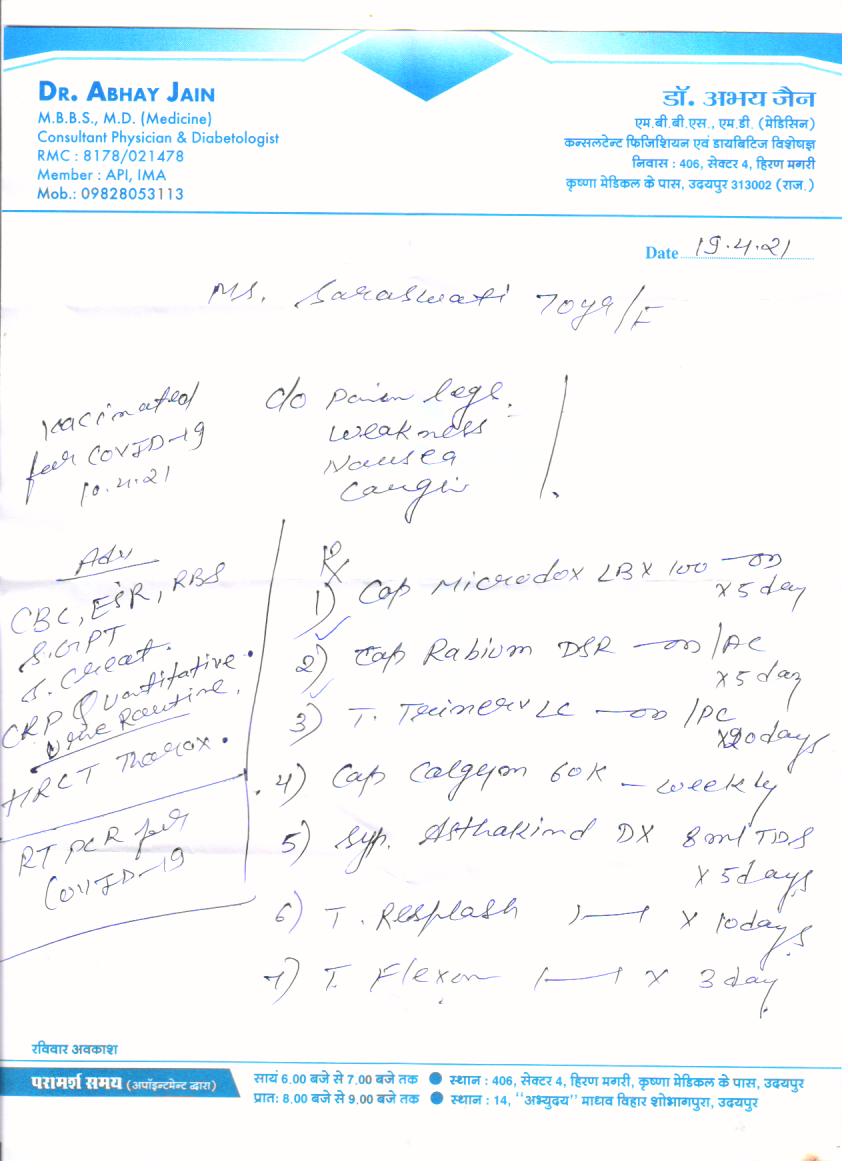 DR. ABHAY JAIN
M.B.B.S., M.D. (Medicine)
Consultant Physician & Diabetologist
RMC : 8178/021478
Member : API, IMA
Mob.: 09828053113
डॉ. अभय जैन
एम.बी.बी.एस., एम.डी. (मेडिसिन)
कन्सलटेन्ट फिजिशियन एवं डायबिटिज विशेषज्ञ
निवास : 406, सेक्टर 4, हिरण मगरी
कृष्णा मेडिकल के पास, उदयपुर 313002 (राज.)
Date 19.4.21
Ms. Saraswati 70yr/F
Vaccinated
for COVID-19
10.4.21
c/o Pain legs.
Weakness
Nausea
Cough
Adv
CBC, ESR, RBS
SGPT
S. Creat.
CRP Quantitative.
Urine Routine,
HRCT Thorax.
RT PCR for
COVID-19
Rx
1) Cap Microdox LBX 100 — OD
x 5 day
2) Cap Rabium DSR — OD /AC
x 5 day
3) T. Trinerv LC — OD /PC
x 20 days
4) Cap Calgem 60K — weekly
5) Syp. Asthakind DX 8ml TDS
x 5 days
6) T. Resplash 1—1 x 10 days
7) T. Flexon 1—1 x 3 day
रविवार अवकाश
परामर्श समय (अपॉइन्टमेन्ट द्वारा)
सायं 6.00 बजे से 7.00 बजे तक ● स्थान : 406, सेक्टर 4, हिरण मगरी, कृष्णा मेडिकल के पास, उदयपुर
प्रातः 8.00 बजे से 9.00 बजे तक ● स्थान : 14, "अभ्युदय" माधव विहार शोभागपुरा, उदयपुर